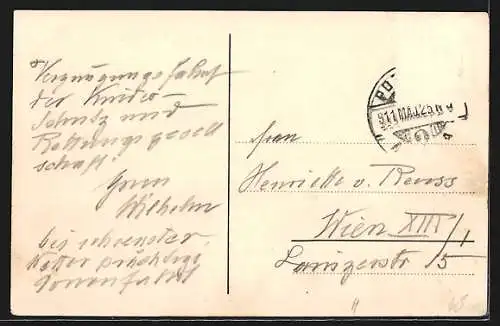 Vergnügungsfahrt
der Kinder-
Schutz und
Rettungsgesell
schaft.
Wilhelm
bei schönster
Wetter prächtige
Donaufahrt
911 MAJ 25
Frau
Henriette v. Reuss
Wien XIII/1
Lainzerstr 5